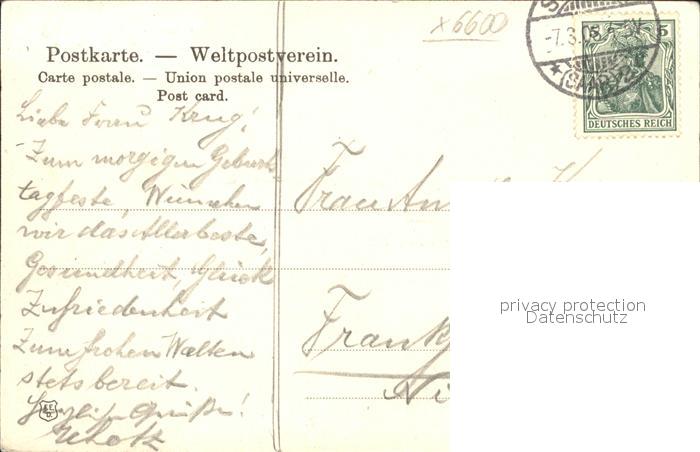 x6600
Postkarte. — Weltpostverein.
Carte postale. — Union postale universelle.
Post card.
-7.3.08
5 5
DEUTSCHES REICH
Liebe Frau Krug!
Zum morgigen Geburts
tagfeste, Wünschen
wir das Allerbeste,
Gesundheit, Glück
Zufriedenheit
Zum frohen Walten
stets bereit.
Herzliche Grüße!
Frau
Frank
privacy protection
Datenschutz